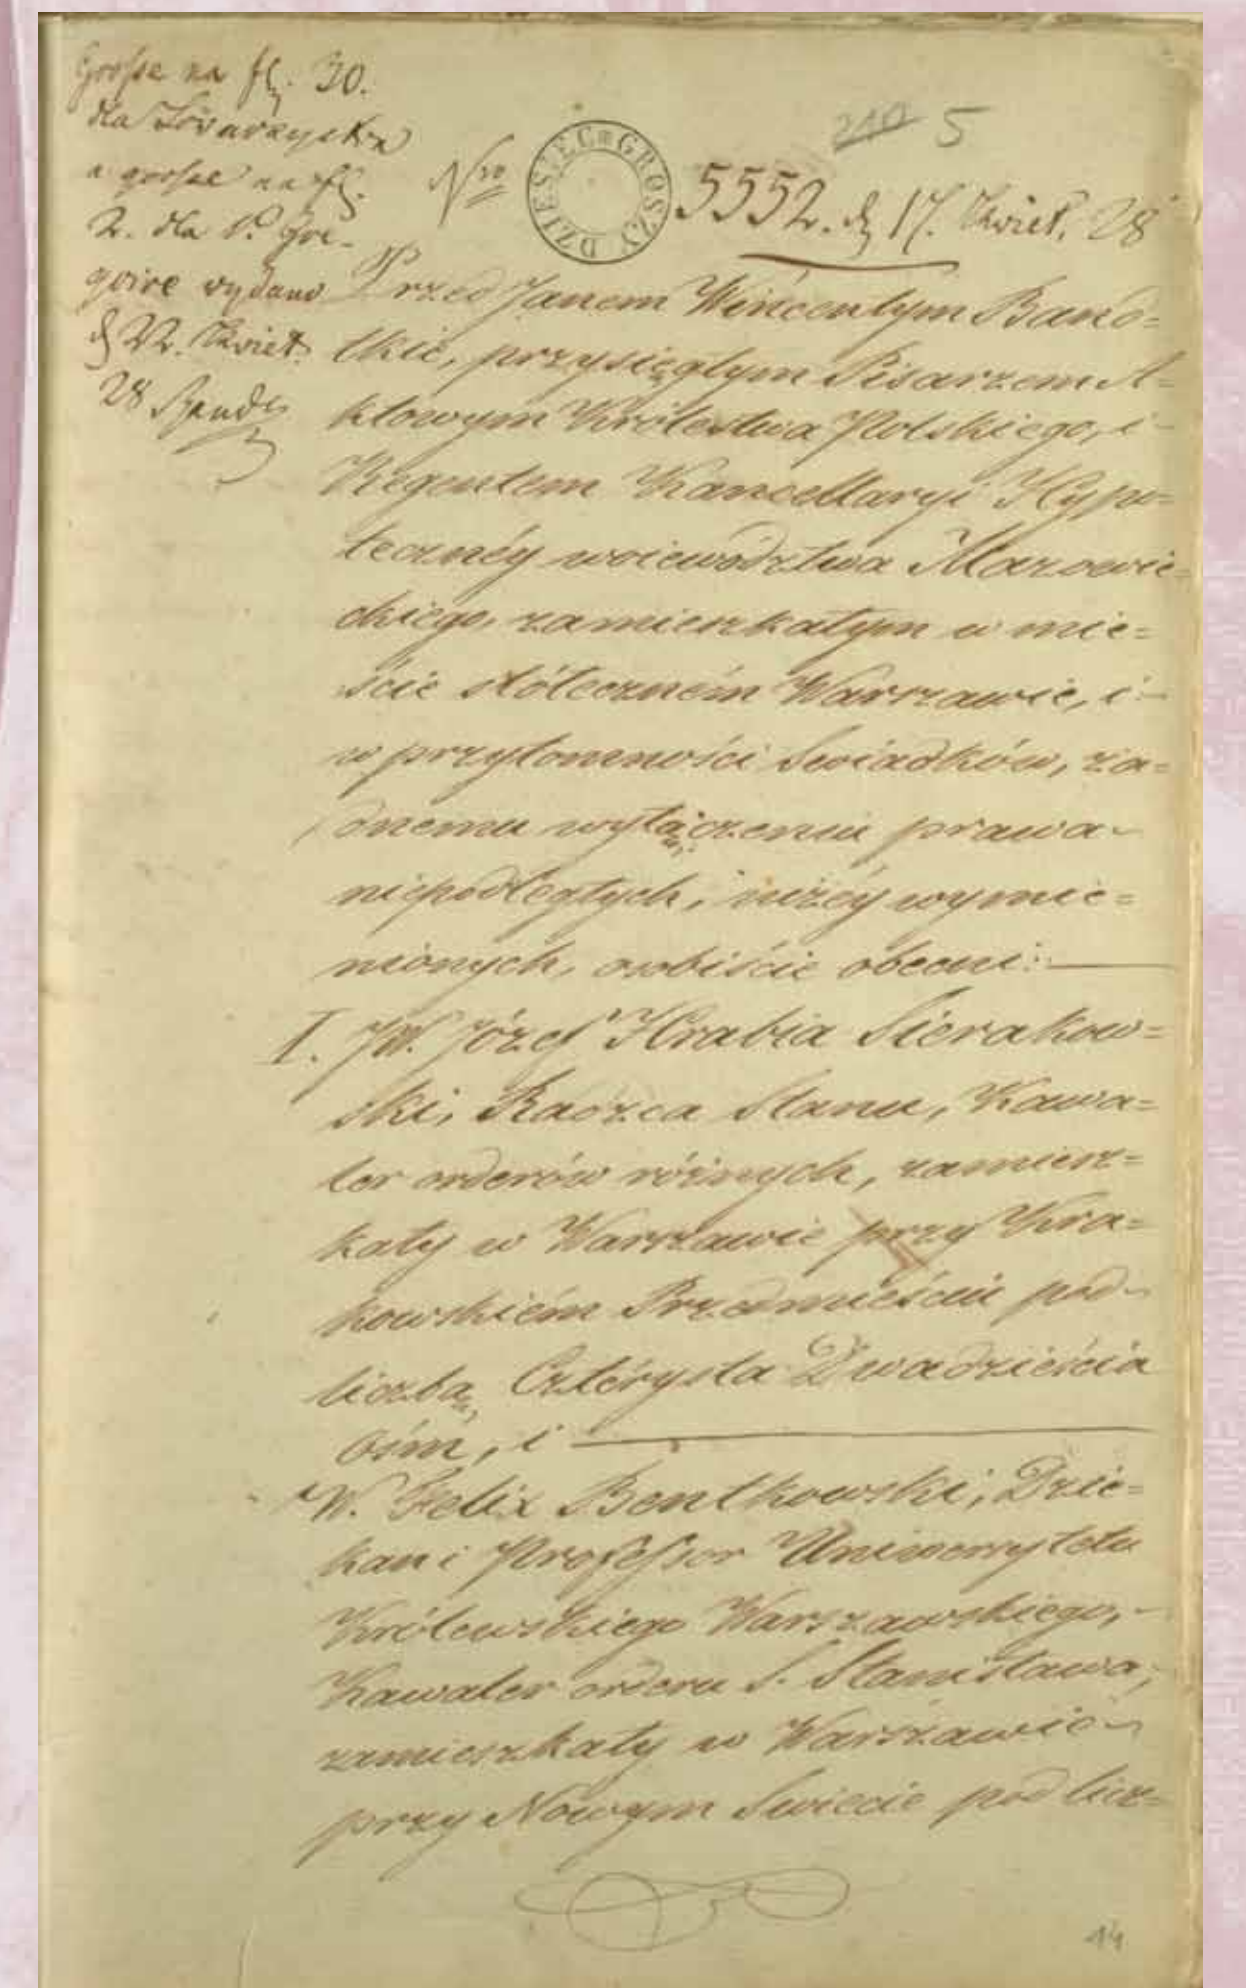 Grosse na fl. 30.
dla Towarzystwa
a grosse na fl.
2. dla P. Gre-
goire wydano
d. 22. Kwiet.
28
210 5
Nro 5552. d. 17. Kwiet. 28
DZIESIĘĆ GROSZY
Przed Janem Wincentym Band=
tkie, przysięgłym Pisarzem A=
ktowym Królestwa Polskiego, i
Regentem Kancellaryi Hypo=
tecznéy woiewództwa Mazowie=
ckiego, zamieszkałym w mie=
ście stółeczném Warszawie, i
w przytomności Swiadków, ża=
dnemu wyłączeniu prawa
niepodległych, niżéy wymie=
nionych, osobiście obecni:
I. JW. Józef Hrabia Sierakow=
ski, Radzca Stanu, Kawa=
ler orderów różnych, zamiesz=
kały w Warszawie przy Kra=
kowskiém Przedmieściu pod
liczbą Cztérysta Dwadzieścia
ośm, i
W. Felix Bentkowski, Dzie=
kan i Professor Uniwersytetu
Królewskiego Warszawskiego,
Kawaler orderu S. Stanisława,
zamieszkały w Warszawie
przy Nowym Swiecie pod licz=
14